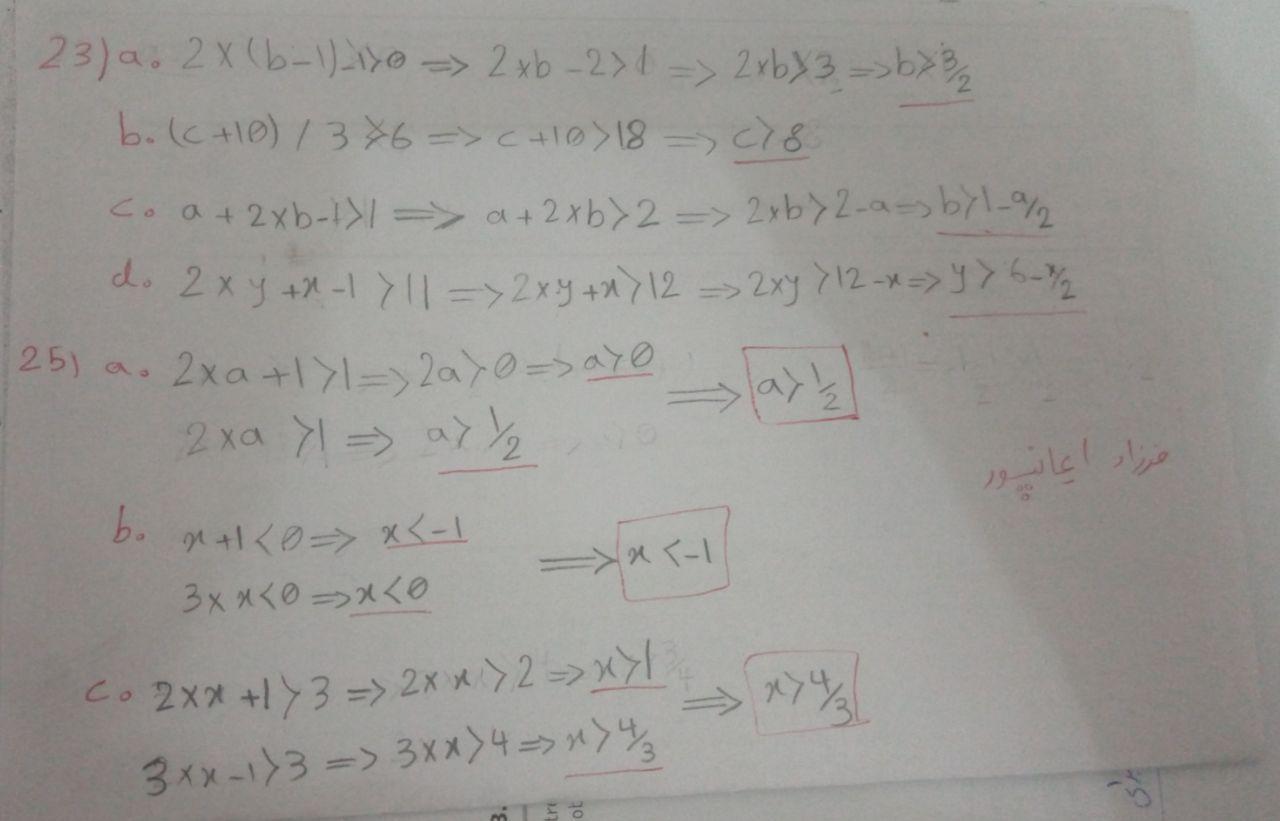 23) a. 2 × (b-1)-1>0 => 2×b - 2>1 => 2×b>3 => b>3/2
b. (c+10) / 3 >6 => c+10>18 => c>8
c. a + 2×b-1>1 => a+2×b>2 => 2×b>2-a => b>1-a/2
d. 2×y+x-1>11 => 2×y+x>12 => 2×y>12-x => y>6-x/2
25) a. 2×a+1>1 => 2a>0 => a>0 => a>1/2
2×a >1 => a>1/2
فرزاد ایمانپور
b. x+1<0 => x<-1 => x<-1
3×x<0 => x<0
c. 2×x+1>3 => 2×x>2 => x>1 => x>4/3
3×x-1>3 => 3×x>4 => x>4/3